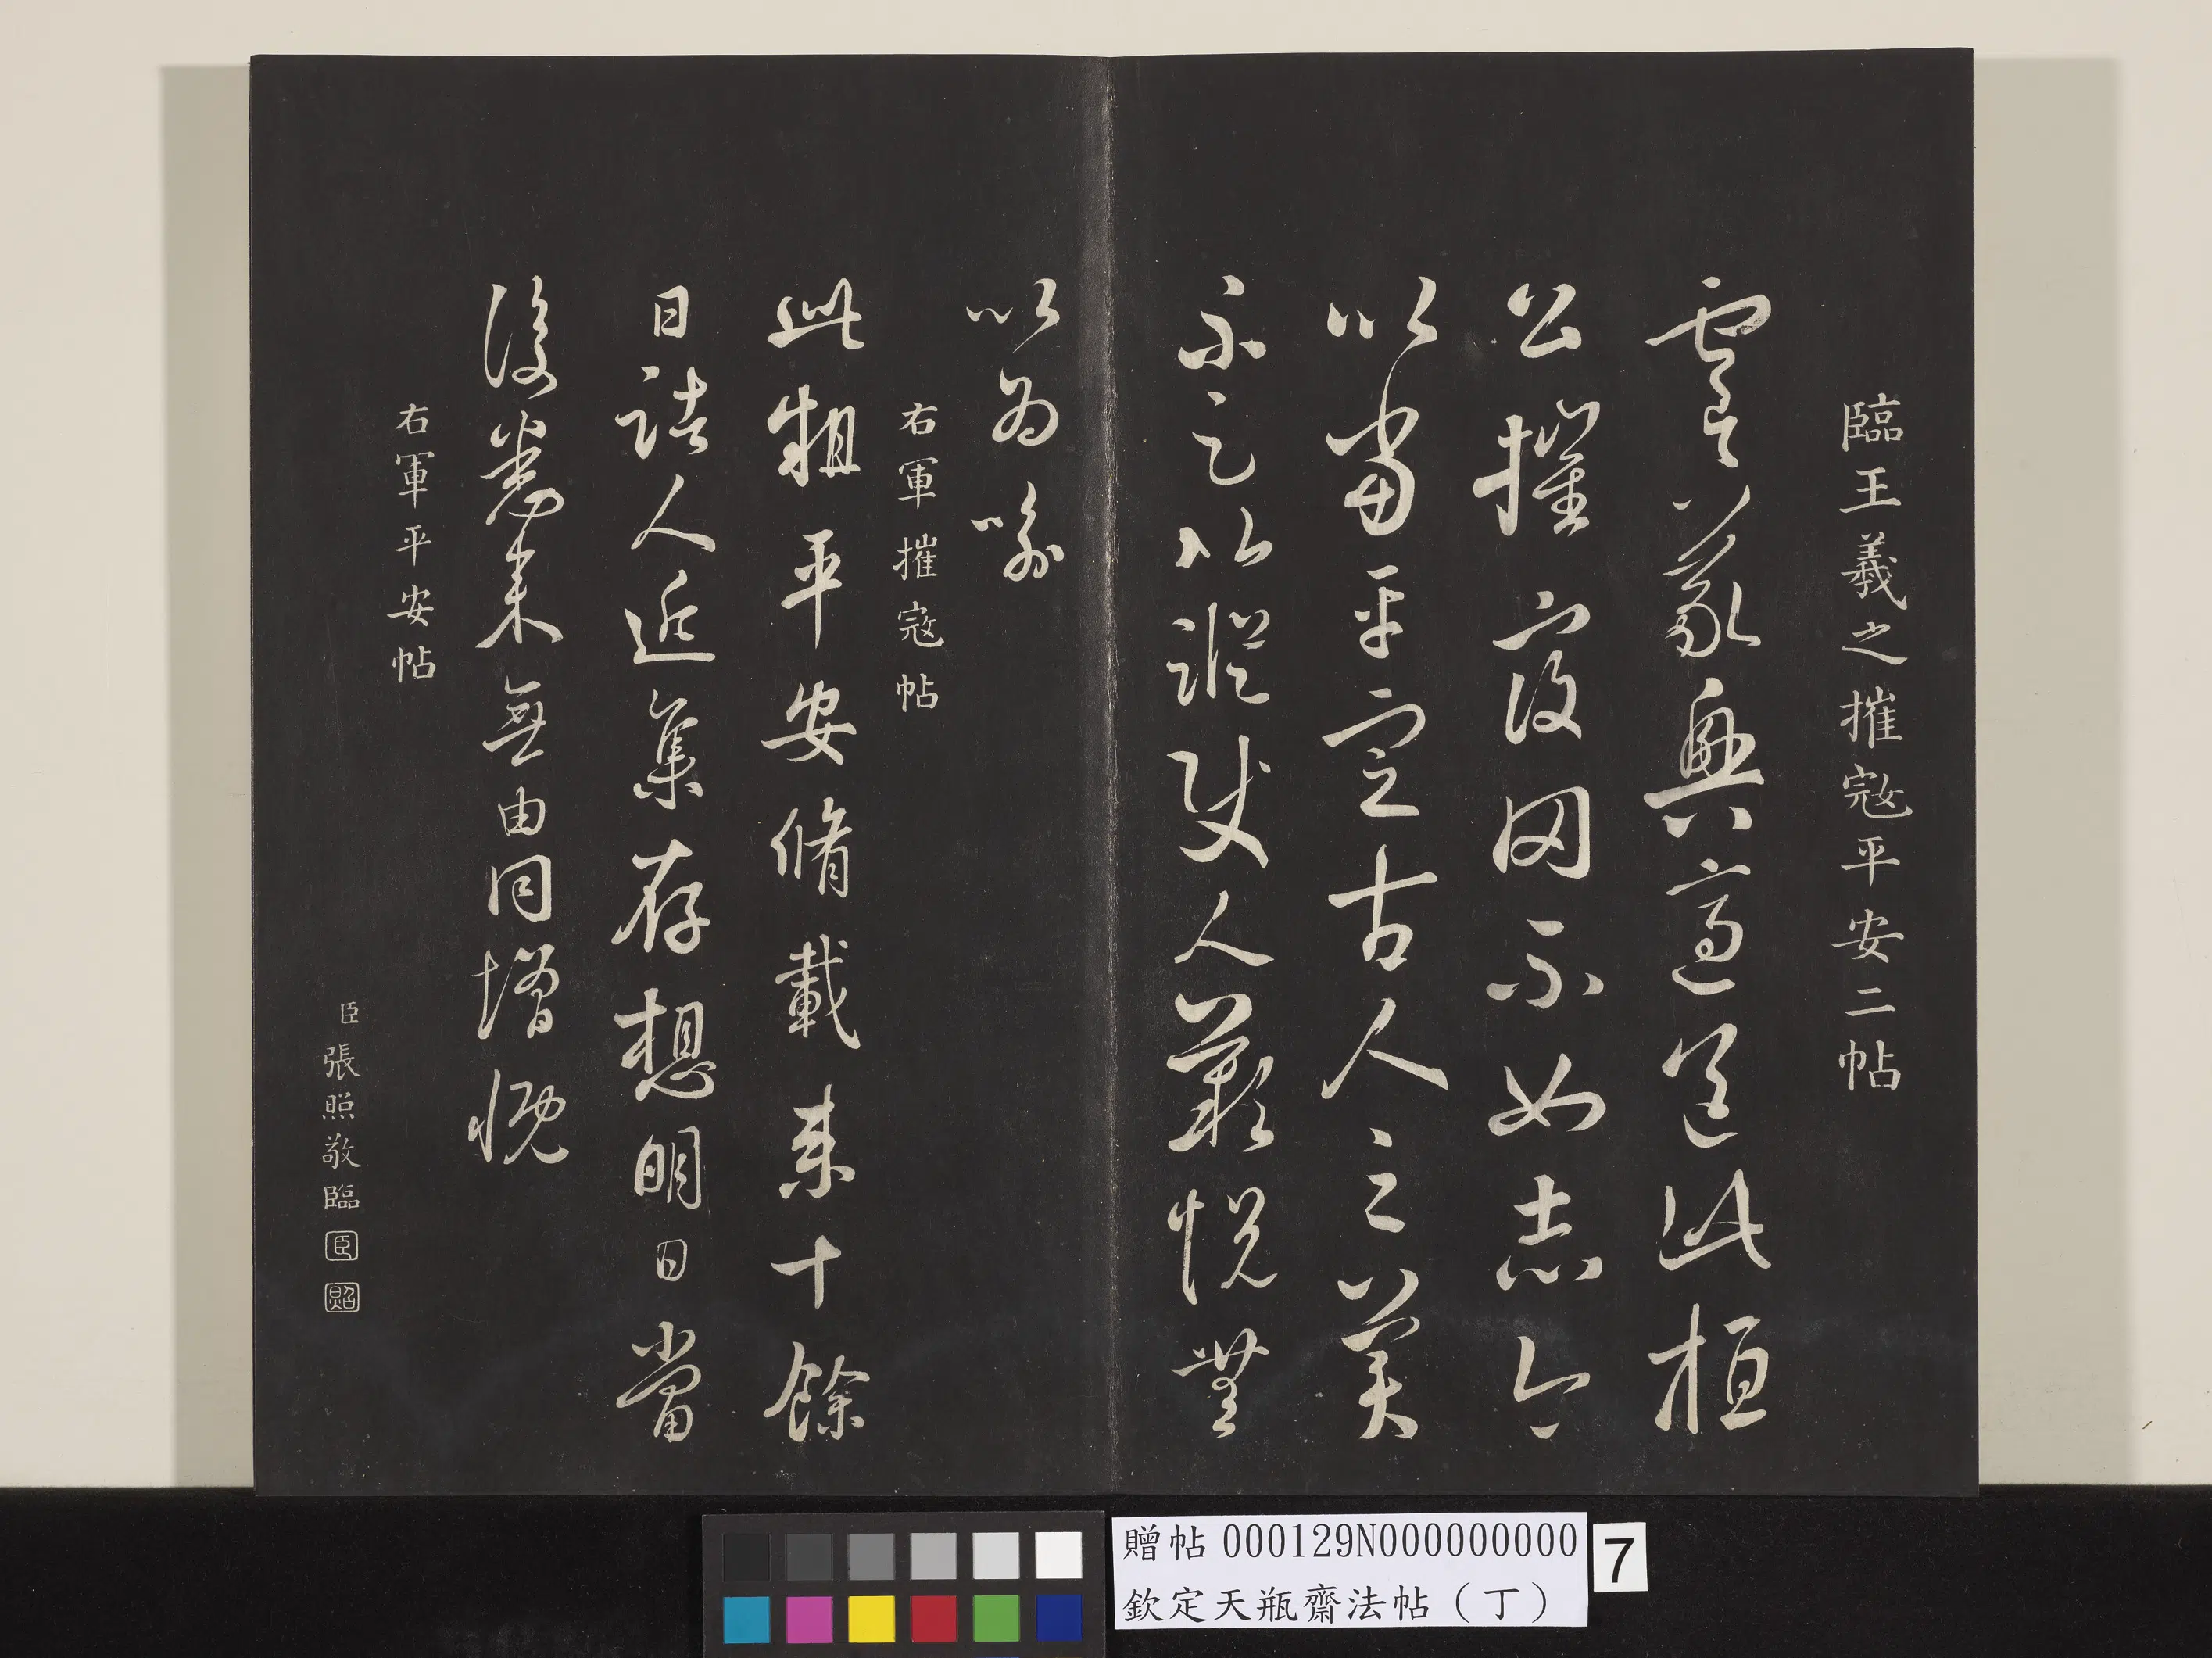 臨王羲之摧寇平安二帖
虞義興適送此桓
公摧寇罔不如志今
以當平定古人之美
不足比蹤使人歎慨無
以為喻
右軍摧寇帖
此粗平安脩載來十餘
日諸人近集存想明日當
復悉來無由同增慨
右軍平安帖
臣張照敬臨
臣
照
贈帖 000129N000000000
欽定天瓶齋法帖（丁）
7